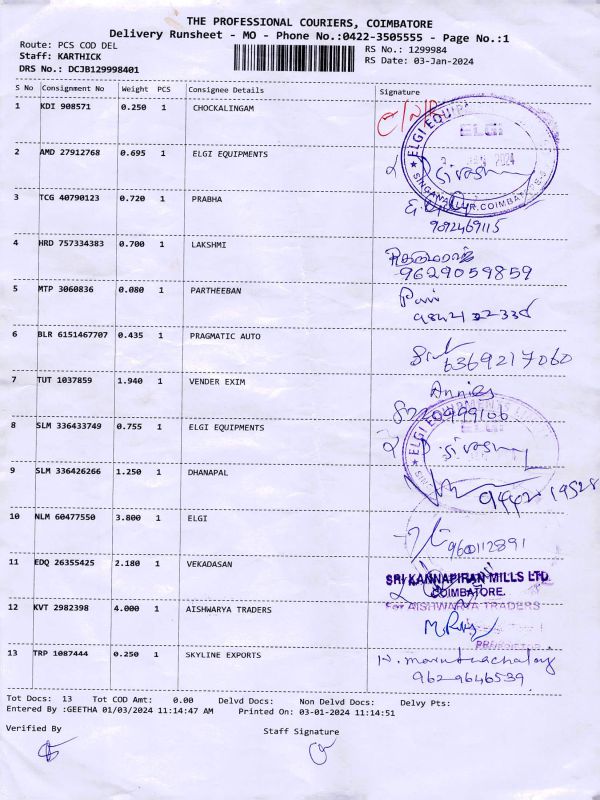 THE PROFESSIONAL COURIERS, COIMBATORE
Delivery Runsheet - MO - Phone No.:0422-3505555 - Page No.:1
Route: PCS COD DEL
RS No.: 1299984
Staff: KARTHICK
RS Date: 03-Jan-2024
DRS No.: DCJB129998401
S No Consignment No Weight PCS Consignee Details Signature
1 KDI 908571 0.250 1 CHOCKALINGAM
2 AMD 27912768 0.695 1 ELGI EQUIPMENTS
ELGI
2024
SINGANALLUR, COIMBATORE-5
3 TCG 40790123 0.720 1 PRABHA
9092469115
4 HRD 757334383 0.700 1 LAKSHMI
9629059859
5 MTP 3060836 0.080 1 PARTHEEBAN
6 BLR 6151467707 0.435 1 PRAGMATIC AUTO
6369217060
7 TUT 1037859 1.940 1 VENDER EXIM
8 SLM 336433749 0.755 1 ELGI EQUIPMENTS
ELGI
9 SLM 336426266 1.250 1 DHANAPAL
10 NLM 60477550 3.800 1 ELGI
9600112891
11 EDQ 26355425 2.180 1 VEKADASAN
SRI KANNAPIRAN MILLS LTD.
COIMBATORE.
12 KVT 2982398 4.000 1 AISHWARYA TRADERS
For AISHWARYA TRADERS
13 TRP 1087444 0.250 1 SKYLINE EXPORTS
9629646539
Tot Docs: 13 Tot COD Amt: 0.00 Delvd Docs: Non Delvd Docs: Delvy Pts:
Entered By :GEETHA 01/03/2024 11:14:47 AM Printed On: 03-01-2024 11:14:51
Verified By
Staff Signature